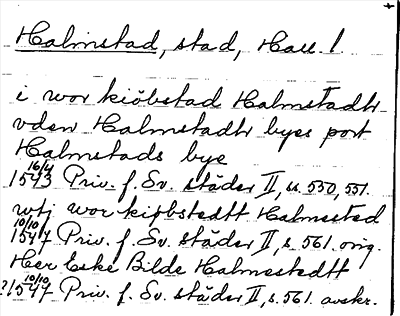 Halmstad, stad, Hall. l.
i wor kiöbstad Halmstadh
vden Halmstadh byes port
Halmstads bye
16/4
1543 Priv. f. Sv. städer II, ss. 550, 551.
wtj wor kiøbstedtt Halmestad
10/10
1547 Priv. f. Sv. städer II, s. 561. orig.
Her Eske Bilde Halmestedtt
10/10
1547 Priv. f. Sv. städer II, s. 561. avskr.